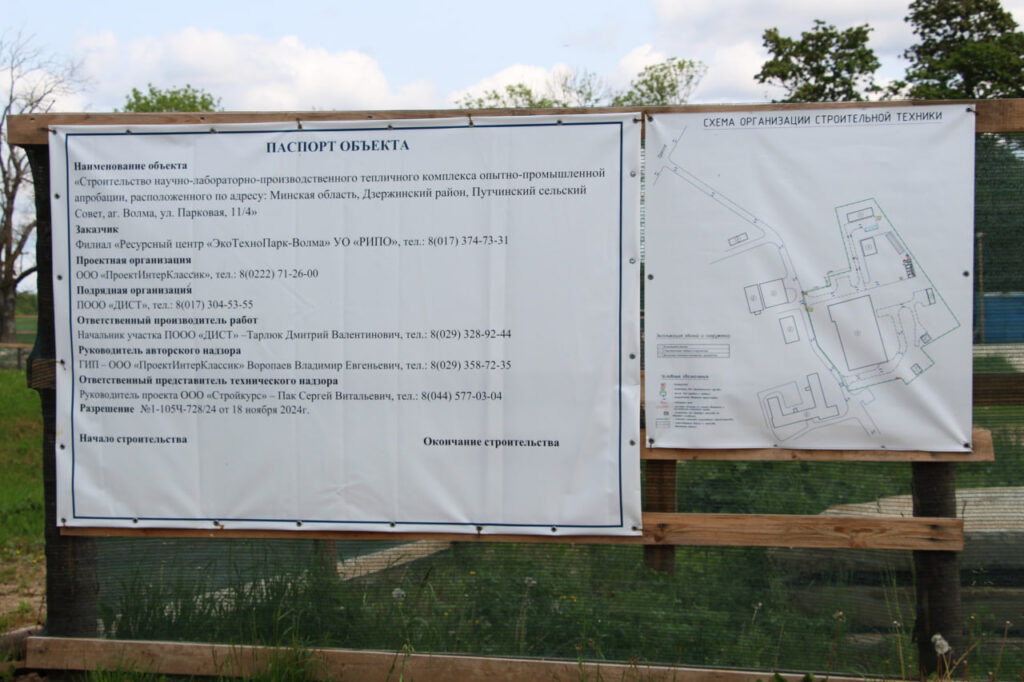 ПАСПОРТ ОБЪЕКТА
Наименование объекта
«Строительство научно-лабораторно-производственного тепличного комплекса опытно-промышленной
апробации, расположенного по адресу: Минская область, Дзержинский район, Путчинский сельский
Совет, аг. Волма, ул. Парковая, 11/4»
Заказчик
Филиал «Ресурсный центр «ЭкоТехноПарк-Волма» УО «РИПО», тел.: 8(017) 374-73-31
Проектная организация
ООО «ПроектИнтерКлассик», тел.: 8(0222) 71-26-00
Подрядная организация
ПООО «ДИСТ», тел.: 8(017) 304-53-55
Ответственный производитель работ
Начальник участка ПООО «ДИСТ» –Тарлюк Дмитрий Валентинович, тел.: 8(029) 328-92-44
Руководитель авторского надзора
ГИП – ООО «ПроектИнтерКлассик» Воропаев Владимир Евгеньевич, тел.: 8(029) 358-72-35
Ответственный представитель технического надзора
Руководитель проекта ООО «Стройкурс» – Пак Сергей Витальевич, тел.: 8(044) 577-03-04
Разрешение №1-105Ч-728/24 от 18 ноября 2024г.
Начало строительства
Окончание строительства
СХЕМА ОРГАНИЗАЦИИ СТРОИТЕЛЬНОЙ ТЕХНИКИ
Экспликация зданий и сооружений
Условные обозначения